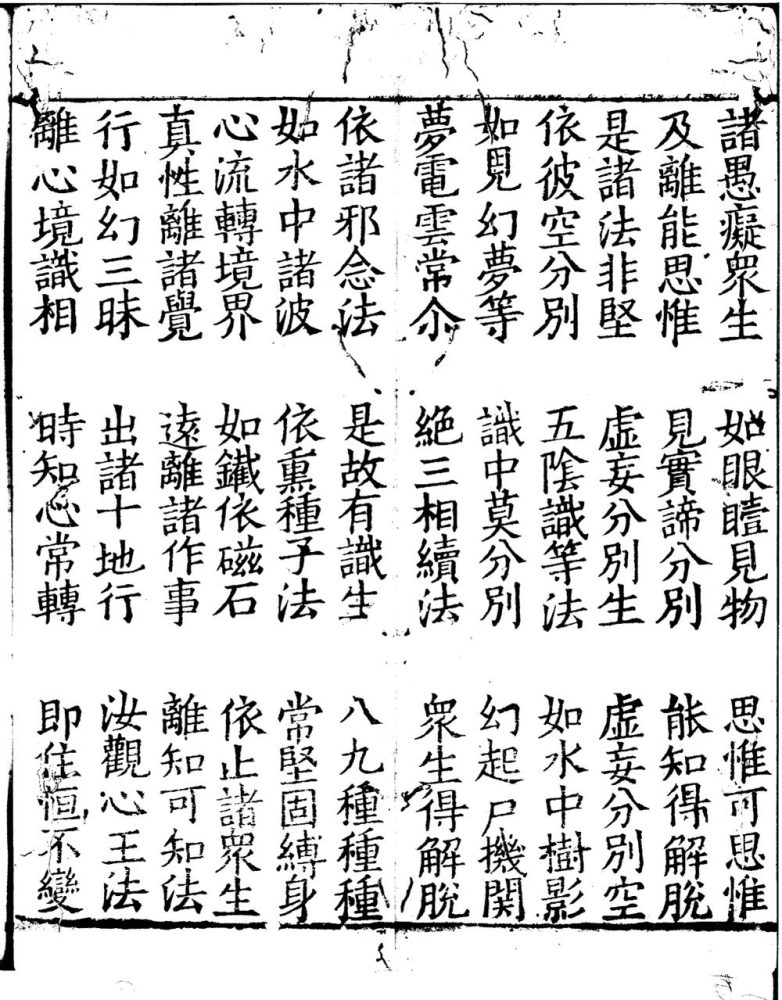 諸愚癡衆生　如眼曀見物　思惟可思惟
及離能思惟　見實諦分別　能知得解脫
是諸法非堅　虛妄分別生　虛妄分別空
依彼空分別　五陰識等法　如水中樹影
如見幻夢等　識中莫分別　幻起尸機関
夢電雲常尒　絕三相續法　衆生得解脫
依諸邪念法　是故有識生　八九種種種
如水中諸波　依熏種子法　常堅固縛身
心流轉境界　如鐵依磁石　依止諸衆生
真性離諸覺　遠離諸作事　離知可知法
行如幻三昧　出諸十地行　汝觀心王法
離心境識相　時知心常轉　即住恒不變